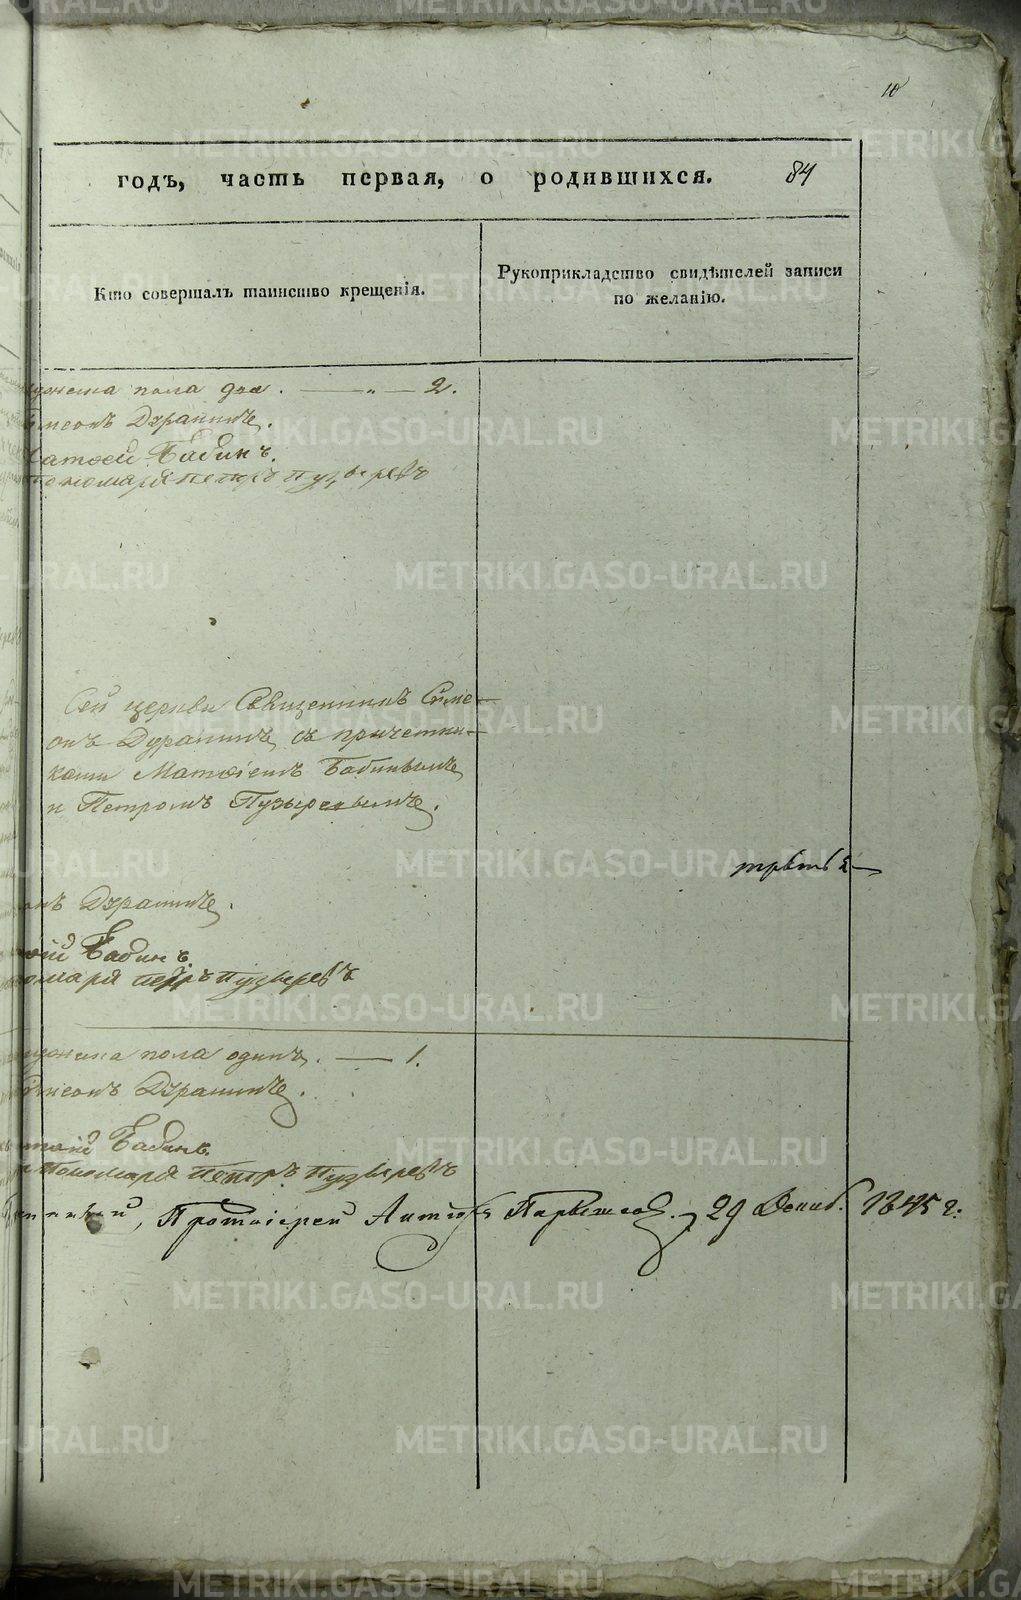 10
годъ, часть первая, о родившихся. 84
Кто совершалъ таинство крещенія.
Рукоприкладство свидѣтелей записи
по желанію.
пола два. — „ — 2.
Дуранинъ.
Бабинъ.
пономаря Петръ Пузыревъ
Сей церкви Священникъ Симе-
онъ Дуранинъ, съ причетни-
ками Матѳіемъ Бабинымъ
и Петромъ Пузыревымъ.
онъ Дуранинъ.
Бабинъ.
Петръ Пузыревъ
пола одинъ. — 1.
Дуранинъ.
Бабинъ.
Пономаря Петръ Пузыревъ
Протоіерей 29 Декаб. 1845 г.
METRIKI.GASO-URAL.RU